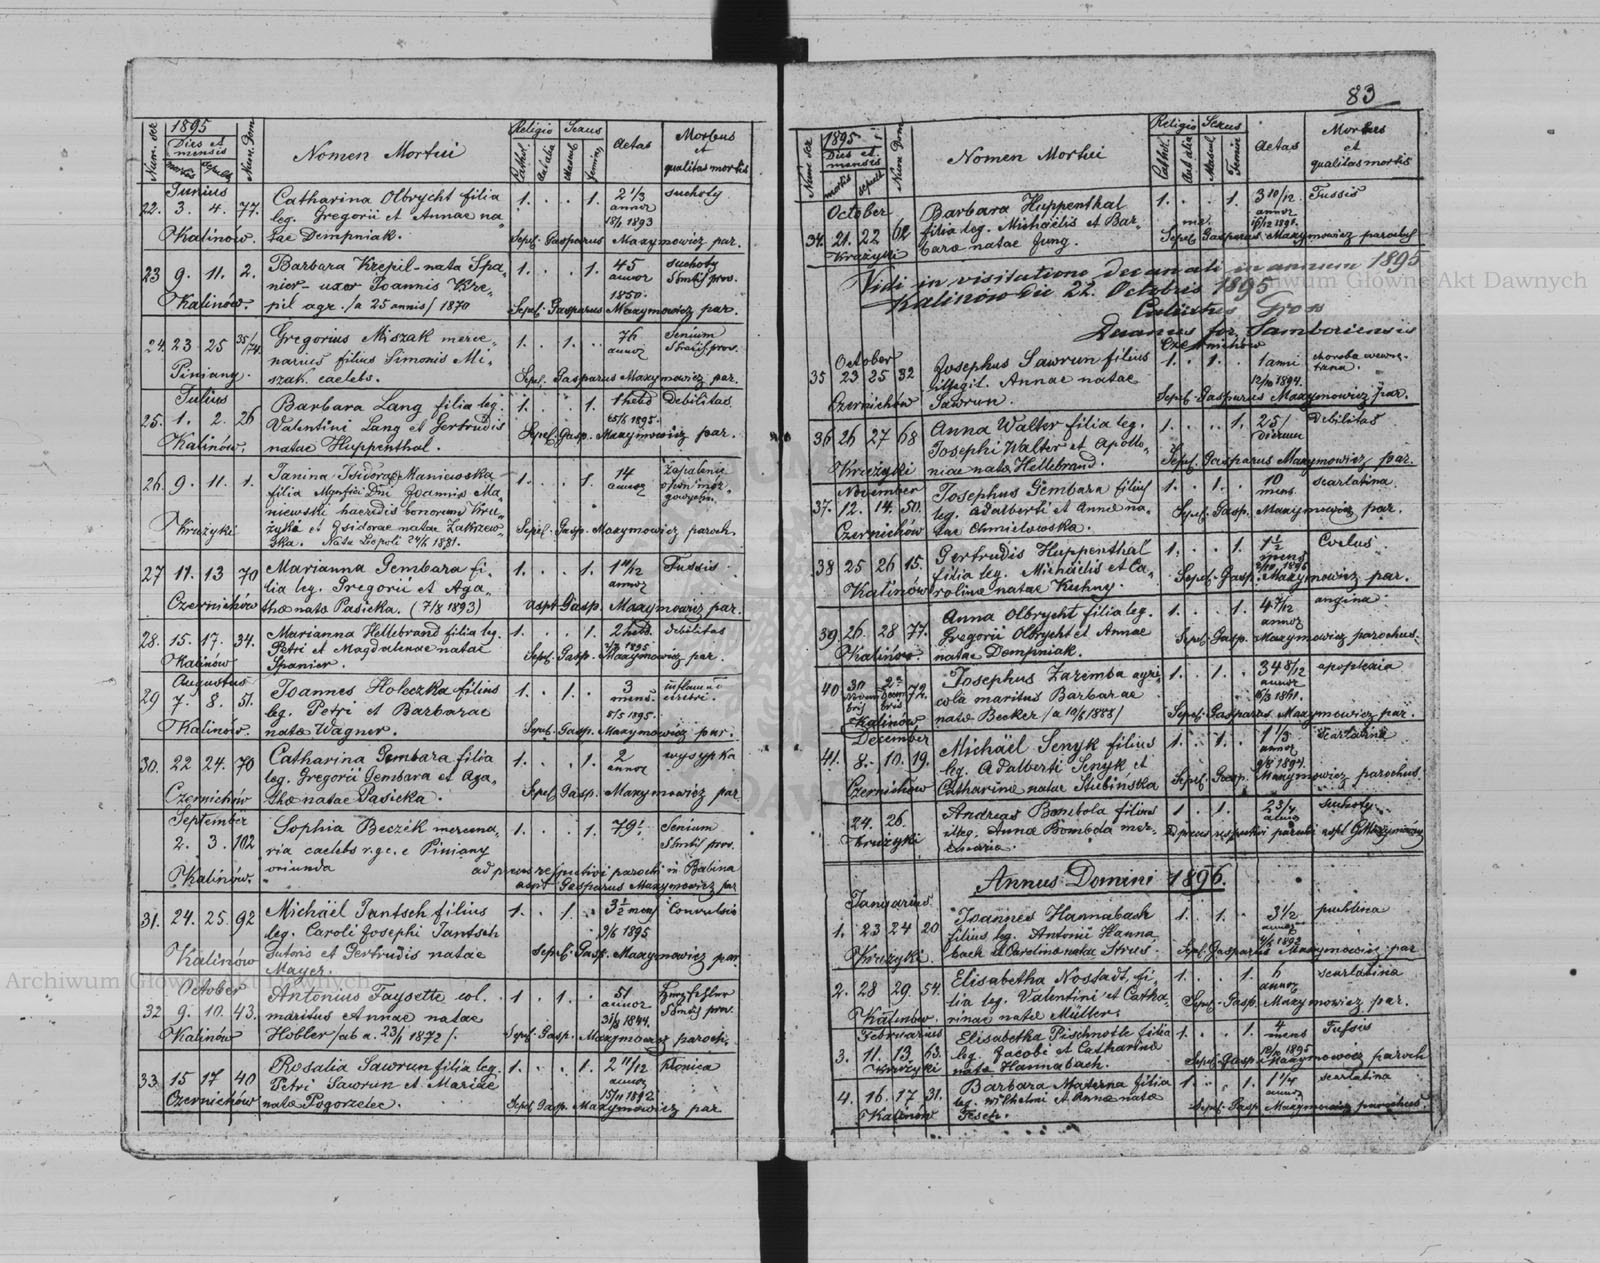 1895
Num. ser.
Dies et mensis
mortis
sepult.
Num. Dom.
Nomen Mortui
Religio
Sexus
Cathol.
Aut alia
Mascul.
Femin.
Aetas
Morbus et qualitas mortis
Junius
22. 3. 4. 77. Catharina Olbrycht filia 1. . . 1. 2 1/3 suchoty
leg. Gregorii et Annae na annor
18/2 1893
Kalinów. tae Dempniak. Sepel. Gasparus Maxymowicz par.
23 9. 11. 2. Barbara Krepil nata Spa- 1. . . 1. 45 suchoty
nier - uxor Joannis Kre- annor
1850.
Kalinów. pil agr. /a 25 annis/ 1870 Sepel. Gasparus Maxymowicz par.
24. 23 25 Gregorius Miszak merce- 1. . 1. . 76 Senium
narius filius Simonis Mi- annor
Piniany. szak. caelebs. Sepel. Gasparus Maxymowicz par.
Julius
25. 1. 2. 26 Barbara Lang filia leg. 1. . . 1. 1 hebd Debilitas
Valentini Lang et Gertrudis
Kalinów. natae Huppenthal. Sepel. Gasp. Maxymowicz par.
26. 9. 11. 1. Janina Isidora Maniewska 1. . . 1. 14 zapalenie
filia Magnfici Dni Joannis Ma- annor
niewski haeredis bonorum Kru-
Krużyki żyki et Isidorae natae Zakrzew- Sepel. Gasp. Maxymowicz paroch.
ska. Nata Leopoli 24/5 1881.
27 11. 13 70 Marianna Gembara fi- 1. . . 1. 1 11/12 Tussis
lia leg. Gregorii et Aga- annor
Czernichów thae nata Pasicka. (7/8 1893) aspt Gasp. Maxymowicz par.
28. 15. 17. 34. Marianna Hellebrand filia leg. 1. . . 1. 2 hebd. debilitas
Petri et Magdalenae natae
Kalinów Spanier. Sepel. Gasp. Maxymowicz par.
Augustus
29 7. 8. 51. Joannes Holeczka filius 1. . 1. . 3
leg. Petri et Barbarae mens.
5/5 1895.
Kalinów. nata Wagner. Sepel. Gasp. Maxymowicz par.
30. 22 24. 70 Catharina Gembara filia 1. . . 1. 2 wysypka
leg. Gregorii Gembara et Aga- annor
Czernichów thae natae Pasicka. Sepel. Gasp. Maxymowicz par
September
2. 3. 102 Sophia Beczek mercena- 1. . . 1. 79. Senium
ria caelebs r.g.c. e Piniany
Kalinów. oriunda ad preces respectivi parochi in Babina
aspt Gasparus Maxymowicz par
31. 24. 25. 92 Michaël Jantsch filius 1. . 1. . 3 1/2 mens Convulsio
leg. Caroli Josephi Jantsch 9/6 1895
Kalinów sutoris et Gertrudis natae Sepel. Gasp. Maxymowicz par.
Mayer.
October
32 9. 10. 43. Antonius Faysette col. 1 . 1. . 51 Herzfehler
maritus Annae natae annor
31/3 1844.
Kalinów Hobler /ab a. 23/1 1872/. Sepel. Gasp. Maxymowicz paroch.
33. 15 17 40 Rosalia Sawrun filia leg. 1. . . 1. 2 11/12 płonica
Petri Sawrun et Mariae annor
15/11 1892
Czernichów nata Pogorzelec. Sepel. Gasp. Maxymowicz par
83
Num. ser.
1895
Dies et mensis
mortis
sepult.
Num. Dom.
Nomen Mortui
Religio
Sexus
Cathol.
Aut alia
Mascul.
Femin.
Aetas
Morbus et qualitas mortis
October
34. 21. 22 62 Barbara Huppenthal 1. . . 1. 3 10/12 Tussis
filia leg. Michaëlis et Bar- annor
Krużyki barae natae Jung. Sepel. Gasparus Maxymowicz parochus
Vidi in visitatione decanali in annum 1895
Kalinów die 22. Octobris 1895
Decanus for. Samboriensis
October
35 23 25 32 Josephus Sawrun filius 1. . 1. . 1 anni choroba wewnę-
illegit. Annae natae trzna.
12/10 1894.
Czernichów Sawrun. Sepel. Gasparus Maxymowicz par.
36 26 27 68 Anna Walter filia leg. 1. . . 1. 25/ Debilitas
Josephi Walter et Apollo- dierum
Krużyki niae nata Hellebrand. Sepel. Gasparus Maxymowicz par.
November
37. 12. 14. 50. Josephus Gembara filius 1. . 1. . 10 scarlatina.
leg. Adalberti et Annae na- mens. Sepel. Gasp. Maxymowicz par.
Czernichów tae Chmielowska.
38 25 26 15. Gertrudis Huppenthal 1. . . 1. 1 1/2
filia leg. Michaëlis et Ca- mens
Kalinów rolinae natae Kuhny. Sepel. Gasp. Maxymowicz par.
39. 26. 28 77. Anna Olbrycht filia leg. 1. . . 1. 4 7/12 angina
Gregorii Olbrycht et Annae annor
Kalinów. natae Dempniak. Sepel. Gasp. Maxymowicz parochus.
40 30 2 72. Josephus Zaremba agri- 1. . 1. . 34 8/12 apoplexia
cola maritus Barbarae annor
6/3 1861.
Kalinów nata Becker /a 10/6 1888/ Sepel. Gasparus Maxymowicz par.
December
41. 8. 10. 19. Michäel Senyk filius 1. . 1. . 1 1/3 Scarlatina
leg. Adalberti Senyk et annor
Czernichów Catharinae natae Stubińska Sepel. Gasp. Maxymowicz parochus.
24. 26. Andreas Bombola filius 1. . 1. . 2 3/4 suchoty.
illeg. Annae Bombola mer-
Krużyki cenaria. ad preces respectivi parochi aspt G. Maxymowicz
Annus Domini 1896.
Januarius
1. 23 24 20 Joannes Hannabach 1. . 1. . 3 1/2 puchlina
filius leg. Antonii Hanna- annor
Krużyki. bach et Carolina nata Streus. Sepel. Gasparus Maxymowicz par
2. 28 29. 54. Elisabetha Nossadt, fi- 1. . . 1. 6 scarlatina
lia leg. Valentini et Catha- annor
Kalinów. rinae natae Müller. Sepel. Gasp. Maxymowicz par.
Februarius
3. 11. 13. 63. Elisabetha Pischnotte filia 1. . . 1. 4 Tussis
leg. Jacobi et Catharina mens
Krużyki nata Hannabach. Sepel. Gasp. Maxymowicz paroch
4. 16. 17 31. Barbara Materna filia 1. . . 1. 1 1/4 scarlatina
leg. Wilhelmi et Annae nata annor
Kalinów Tesch. Sepel. Gasp. Maxymowicz parochus.
Archiwum Główne Akt Dawnych
Archiwum Główne Akt Dawnych